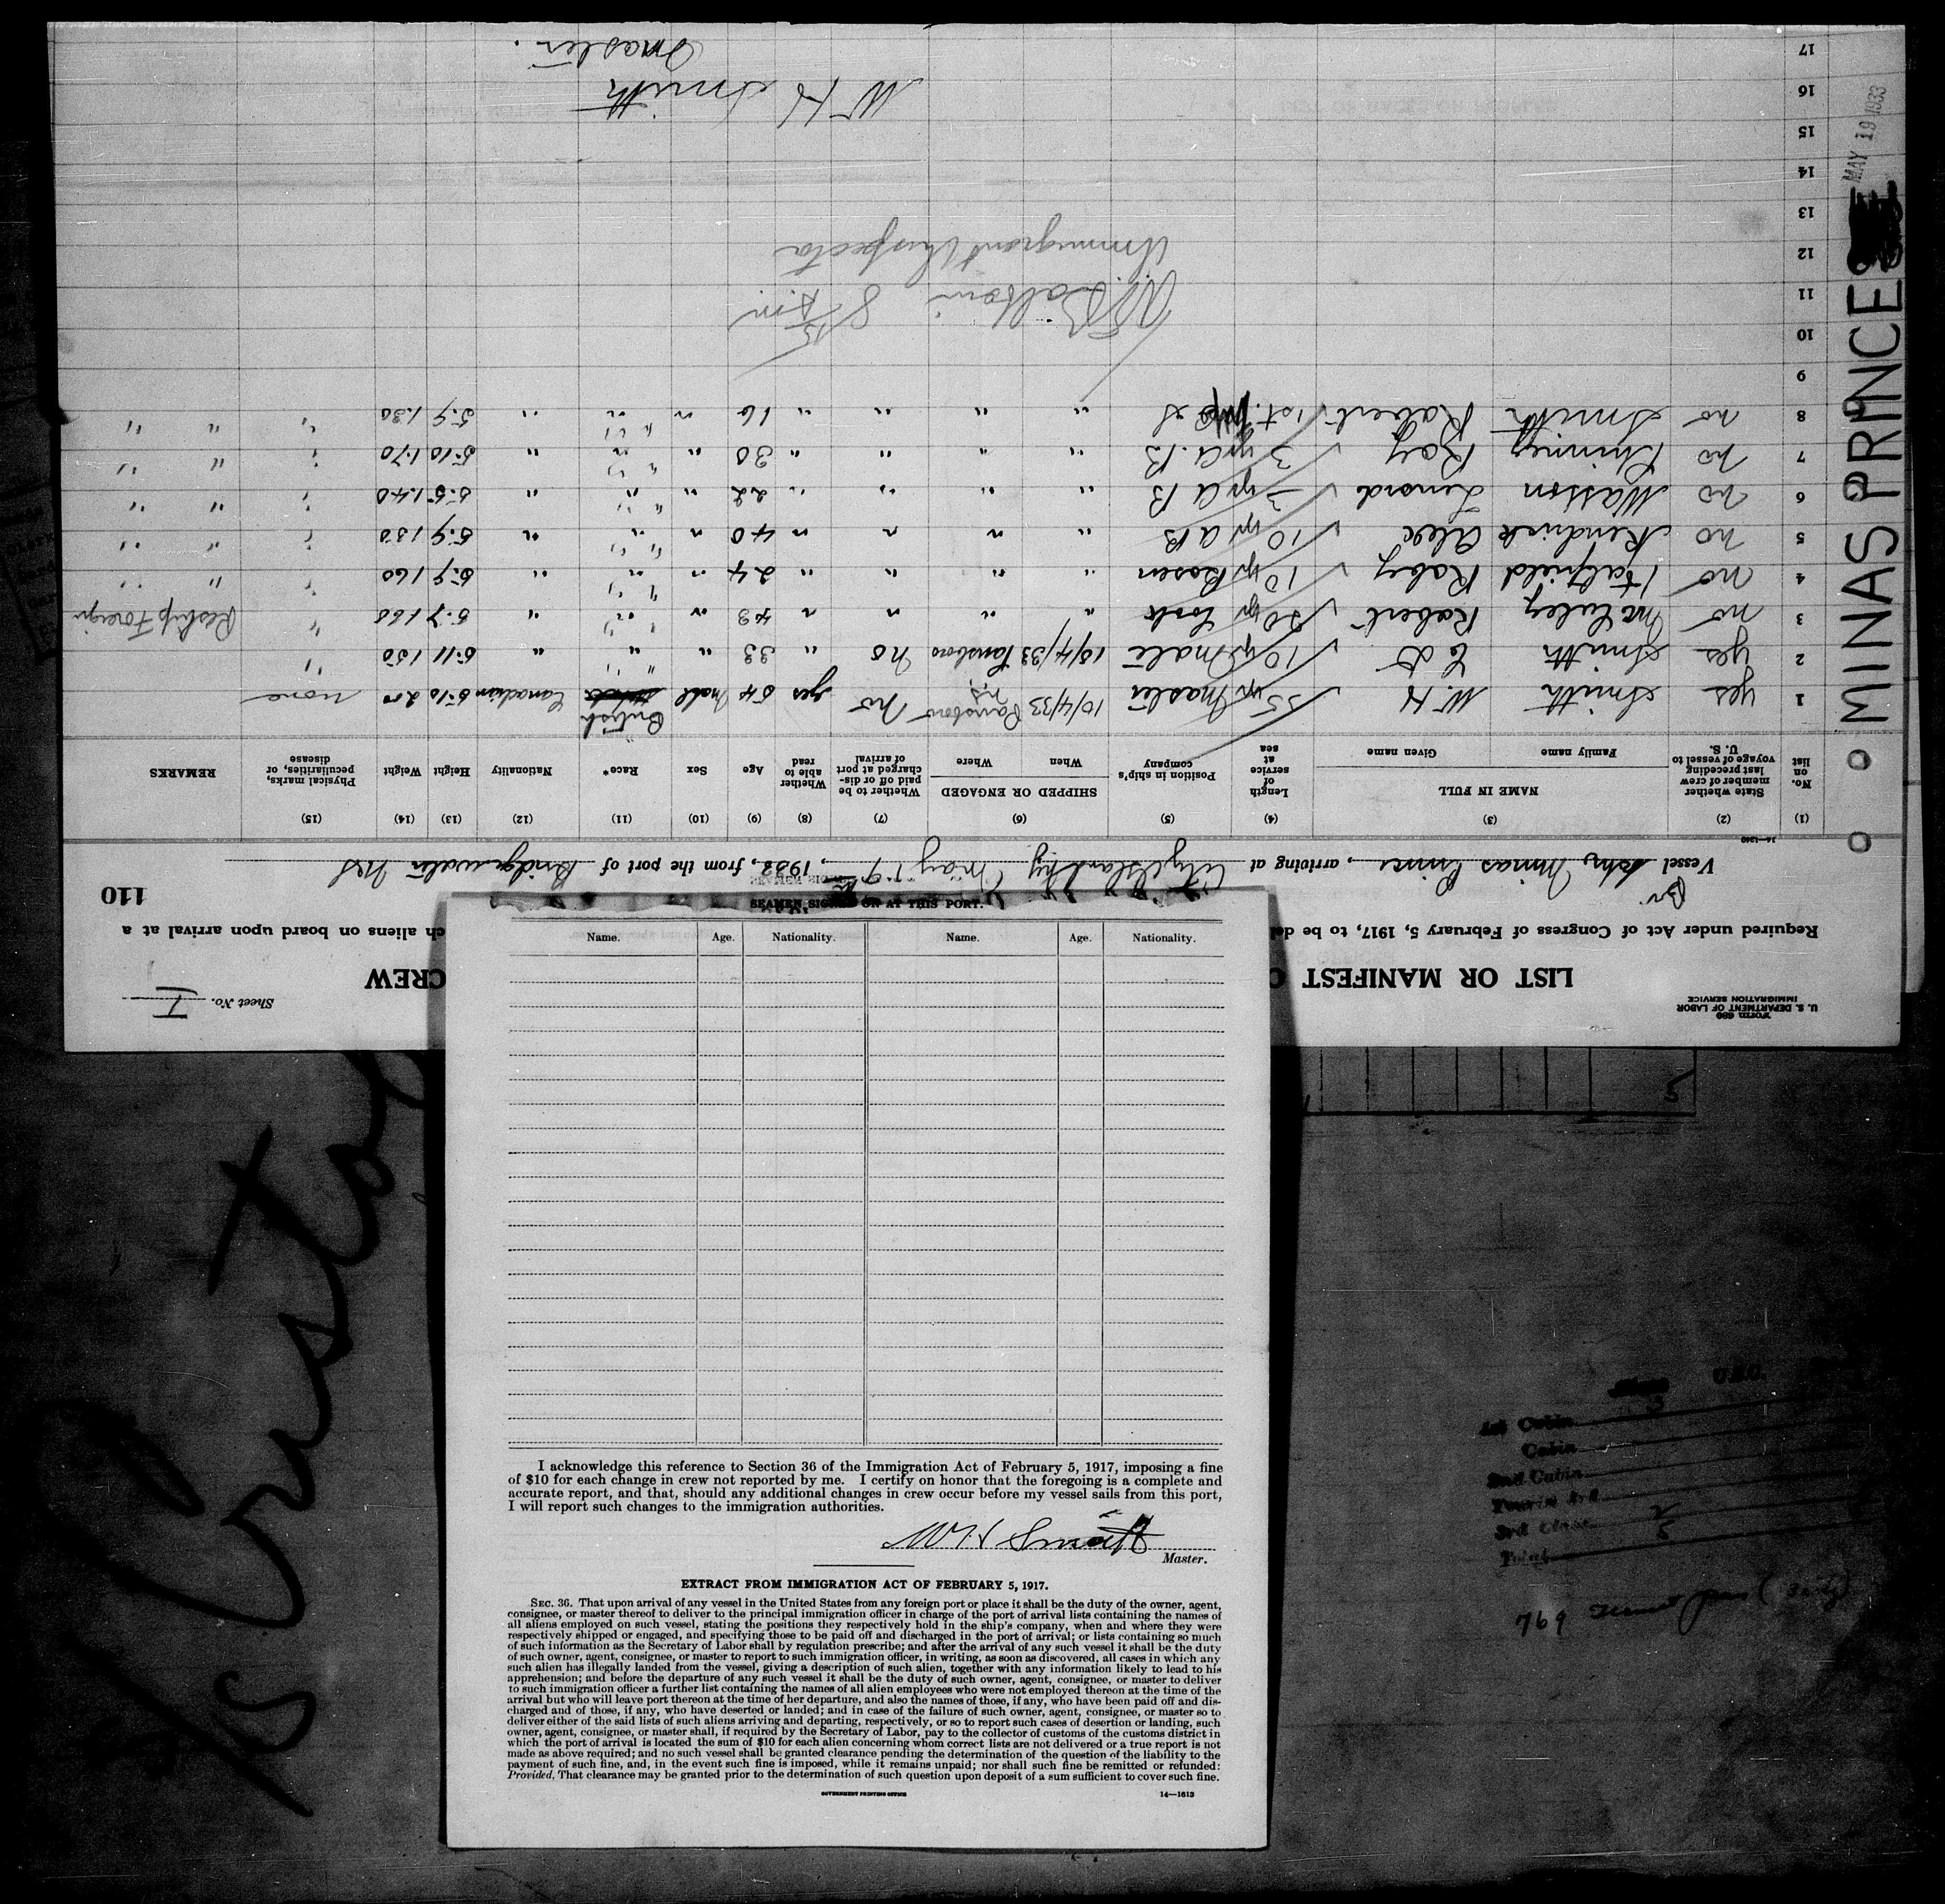 U. S. DEPARTMENT OF LABOR
IMMIGRATION SERVICE
Form 680
Sheet No. I
LIST OR MANIFEST O CREW
Required under Act of Congress of February 5, 1917, to be de ch aliens on board upon arrival at a
110
Br.
Vessel Schr Minas Prince, arriving at City Island NY May 19, 1933, from the port of Bridgewater NS
14—1240
(1) (2) (3) (4) (5) (6) (7) (8) (9) (10) (11) (12) (13) (14) (15)
No. on list
State whether member of crew last preceding voyage of vessel to U. S.
NAME IN FULL
Family name Given name
Length of service at sea
Position in ship's company
SHIPPED OR ENGAGED
When Where
Whether to be paid off or discharged at port of arrival
Whether able to read
Age
Sex
Race*
Nationality
Height
Weight
Physical marks, peculiarities, or disease
REMARKS
1 yes Smith W. H 35 yr Master 10/4/33 Parrsboro N.S. no yes 54 Male British Canadian 5-10 200 none
2 yes Smith E D 10 yr Mate 10/4/33 Parsboro no " 33 " " " 5-11 150 "
3 no McCuley Robert 20 yr Cook " " " " 43 " " " 5-7 160 " Reship Foreign
4 no Hatfield Roby 10 yr Bosen " " " " 24 " " " 5-9 160 " " "
5 no Kendrick Alex 10 yr A B " " " " 40 " " " 5-9 130 " " "
6 no Wasson Lenord 3 yr A B " " " " 22 " " " 5-5 140 " " "
7 no Phinney Roy 3 yr A. B " " " " 30 " " " 5-10 170 " " "
8 no Smith Robert 1st. " " " " 16 " " " 5-9 130 " " "
9
10
11
12
13
14
15
16
17
Dalton 8 15 A.m
Immigrant Inspector
W H Smith
Master.
MINAS PRINCE
MAY 19 1933
SEAMEN SIGNED ON AT THIS PORT.
Name. Age. Nationality. Name. Age. Nationality.
I acknowledge this reference to Section 36 of the Immigration Act of February 5, 1917, imposing a fine
of $10 for each change in crew not reported by me. I certify on honor that the foregoing is a complete and
accurate report, and that, should any additional changes in crew occur before my vessel sails from this port,
I will report such changes to the immigration authorities.
W H Smith
Master.
EXTRACT FROM IMMIGRATION ACT OF FEBRUARY 5, 1917.
SEC. 36. That upon arrival of any vessel in the United States from any foreign port or place it shall be the duty of the owner, agent,
consignee, or master thereof to deliver to the principal immigration officer in charge of the port of arrival lists containing the names of
all aliens employed on such vessel, stating the positions they respectively hold in the ship's company, when and where they were
respectively shipped or engaged, and specifying those to be paid off and discharged in the port of arrival; or lists containing so much
of such information as the Secretary of Labor shall by regulation prescribe; and after the arrival of any such vessel it shall be the duty
of such owner, agent, consignee, or master to report to such immigration officer, in writing, as soon as discovered, all cases in which any
such alien has illegally landed from the vessel, giving a description of such alien, together with any information likely to lead to his
apprehension; and before the departure of any such vessel it shall be the duty of such owner, agent, consignee, or master to deliver
to such immigration officer a further list containing the names of all alien employees who were not employed thereon at the time of the
arrival but who will leave port thereon at the time of her departure, and also the names of those, if any, who have been paid off and dis-
charged and of those, if any, who have deserted or landed; and in case of the failure of such owner, agent, consignee, or master so to
deliver either of the said lists of such aliens arriving and departing, respectively, or so to report such cases of desertion or landing, such
owner, agent, consignee, or master shall, if required by the Secretary of Labor, pay to the collector of customs of the customs district in
which the port of arrival is located the sum of $10 for each alien concerning whom correct lists are not delivered or a true report is not
made as above required; and no such vessel shall be granted clearance pending the determination of the question of the liability to the
payment of such fine, and, in the event such fine is imposed, while it remains unpaid; nor shall such fine be remitted or refunded:
Provided, That clearance may be granted prior to the determination of such question upon deposit of a sum sufficient to cover such fine.
GOVERNMENT PRINTING OFFICE 14—1613
U.S.C.
1st Cabin
Cabin
2nd Cabin
Tourist 3rd
3rd Class
Total
769